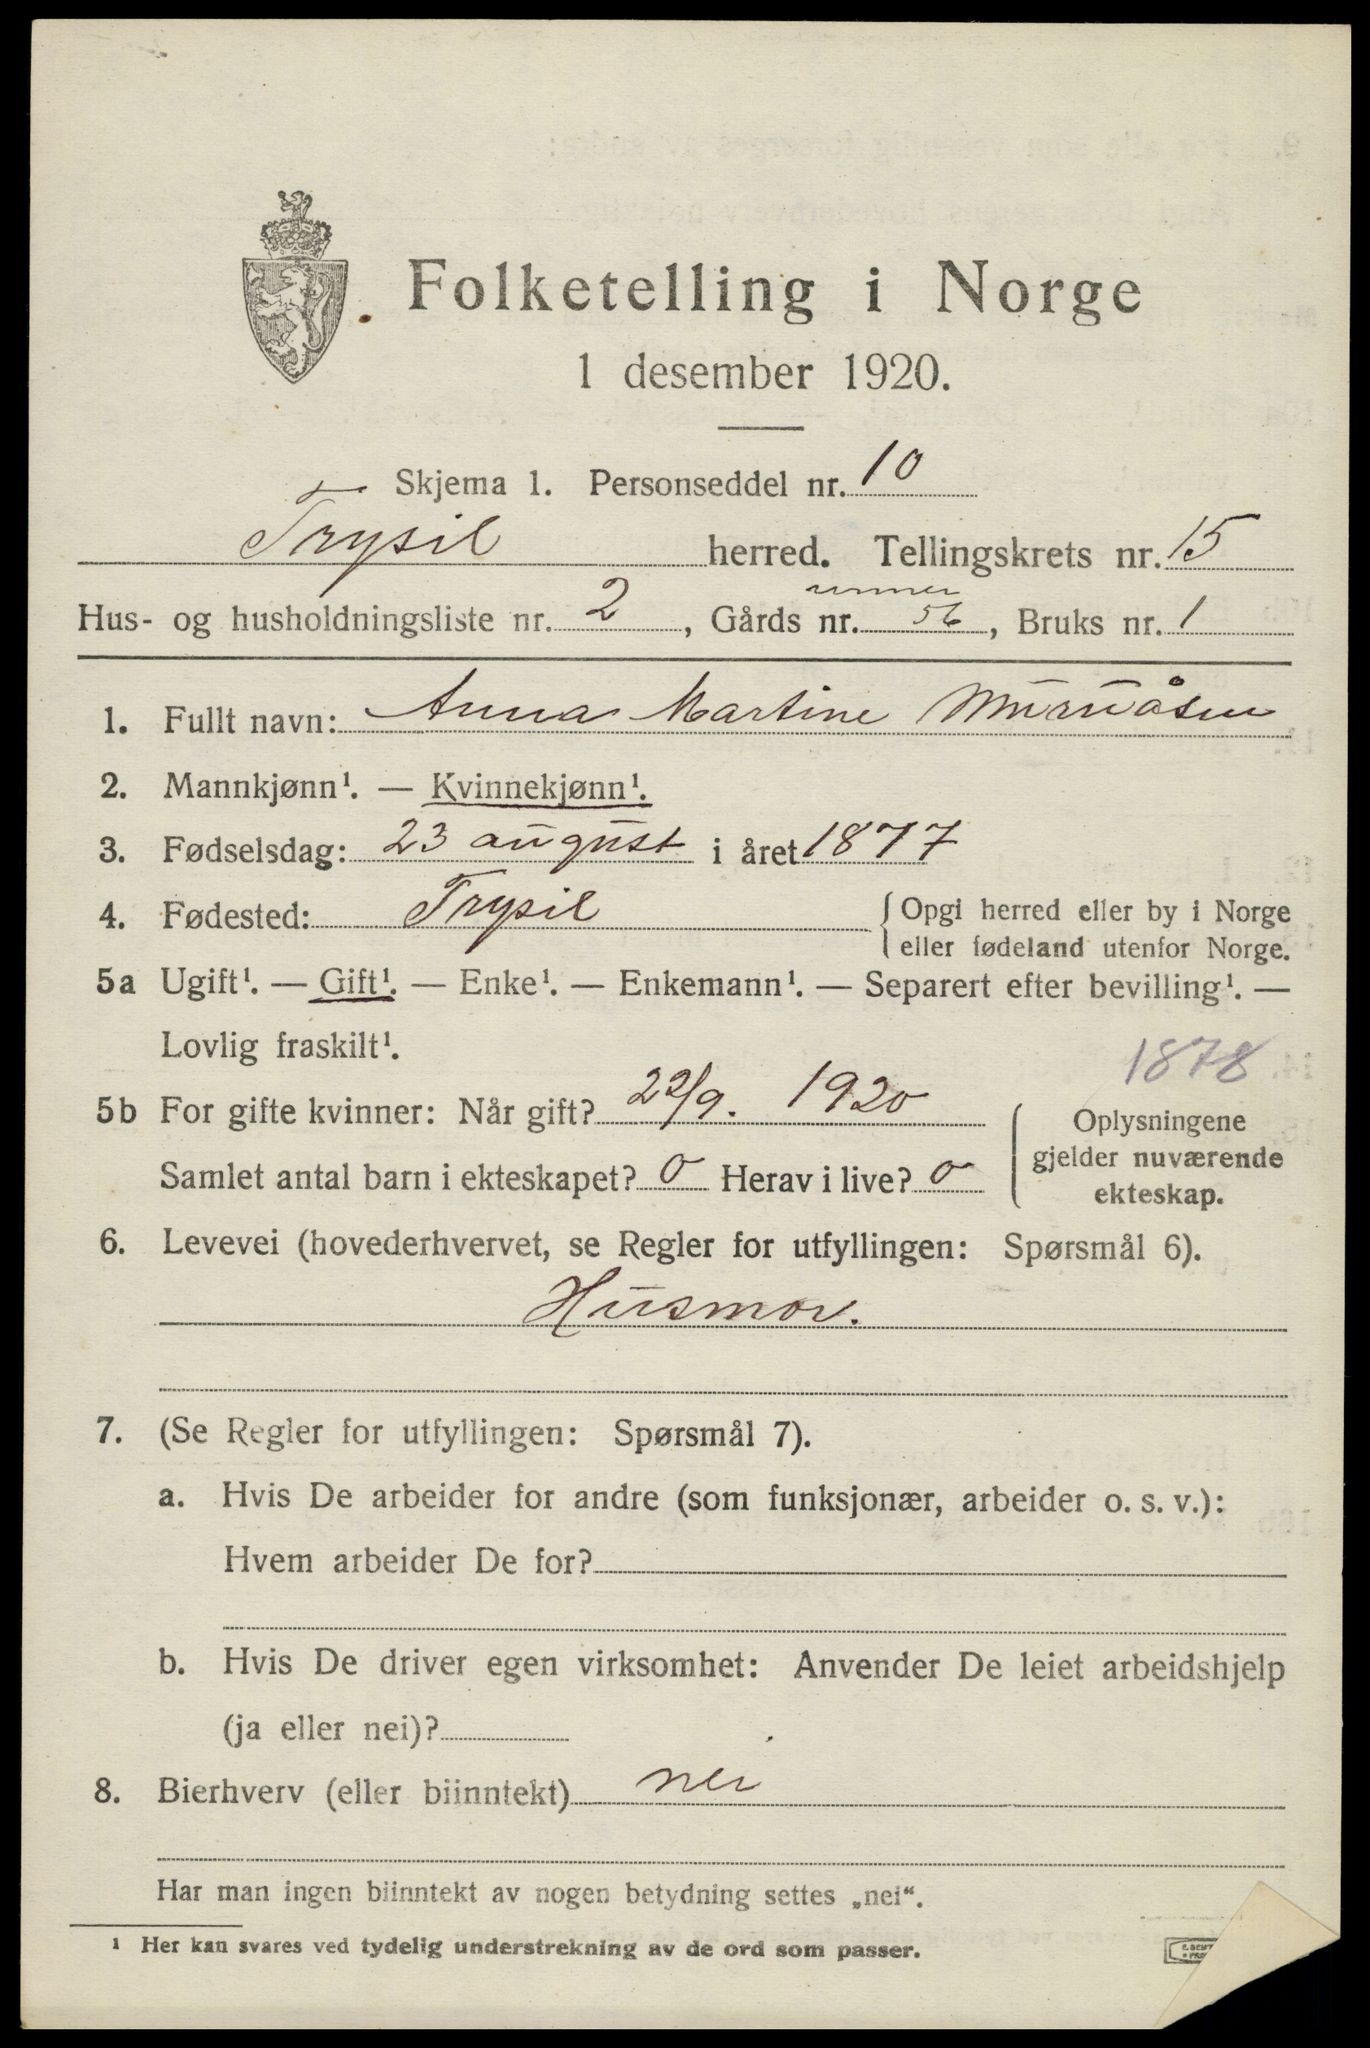 Folketelling i Norge
1 desember 1920.
Skjema 1. Personseddel nr. 10
Trysil herred. Tellingskrets nr. 15
Hus- og husholdningsliste nr. 2, Gårds nr. 56, Bruks nr. 1
1. Fullt navn: Anna Martine
2. Mannkjønn¹. — Kvinnekjønn¹.
3. Fødselsdag: 23 august i året 1877
4. Fødested: Trysil { Opgi herred eller by i Norge
eller fødeland utenfor Norge.
5a Ugift¹. — Gift¹. — Enke¹. — Enkemann¹. — Separert efter bevilling¹. —
Lovlig fraskilt¹.
1878
5b For gifte kvinner: Når gift? 22/9. 1920
Samlet antal barn i ekteskapet? 0 Herav i live? 0
Oplysningene
gjelder nuværende
ekteskap.
6. Levevei (hovederhvervet, se Regler for utfyllingen: Spørsmål 6).
Husmor.
7. (Se Regler for utfyllingen: Spørsmål 7).
a. Hvis De arbeider for andre (som funksjonær, arbeider o. s. v.):
Hvem arbeider De for?
b. Hvis De driver egen virksomhet: Anvender De leiet arbeidshjelp
(ja eller nei)?
8. Bierhverv (eller biinntekt) nei
Har man ingen biinntekt av nogen betydning settes „nei“.
¹ Her kan svares ved tydelig understrekning av de ord som passer.